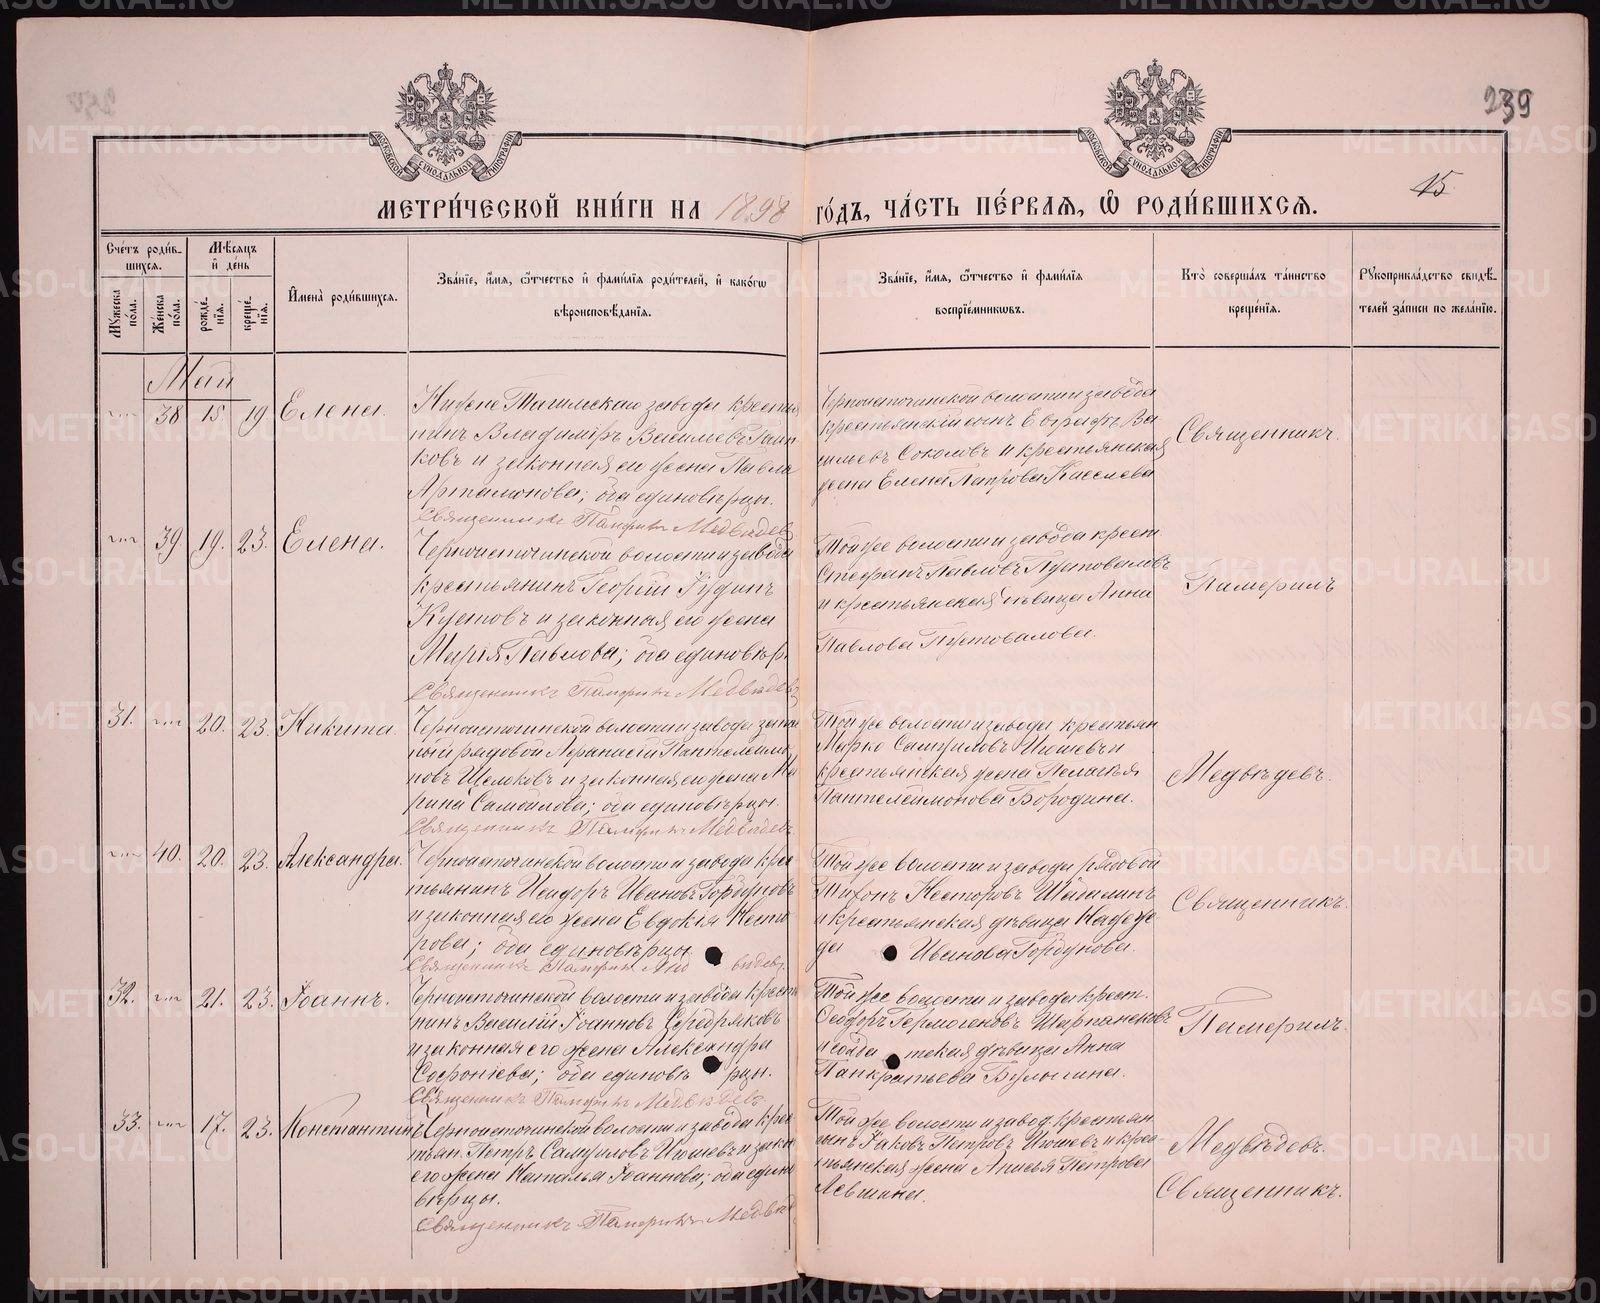 239
15
МОСКОВСКОЙ СѴНОДАЛЬНОЙ ТИПОГРАФІИ
МОСКОВСКОЙ СѴНОДАЛЬНОЙ ТИПОГРАФІИ
МЕТРИ́ЧЕСКОЙ КНИ́ГИ НА 1898 ГО́ДЪ, ЧА́СТЬ ПЕ́РВАЯ, Ѽ РОДИ́ВШИХСЯ.
Сче́тъ роди́вшихся.
Мꙋ́жеска по́ла.
Же́нска по́ла.
Мѣ́сяцъ и҆ де́нь
рожде́нїя.
креще́нїя.
И҆мена̀ роди́вшихся.
Зва́нїе, и҆́мя, ѻ҆́тчество и҆ фами́лїя роди́телей, и҆ како́гѡ вѣроисповѣ́данїя.
Зва́нїе, и҆́мя, ѻ҆́тчество и҆ фами́лїя воспрїе́мникѡвъ.
Кто̀ соверша́лъ та́инство креще́нїя.
Рꙋкоприкла́дство свидѣ́телей за́писи по жела́нїю.
Май
38 15 19 Елена.
Нижне Тагильскаго завода крестья
нинъ Владиміръ Васильевъ
ковъ и законная его жена Павла
Артамонова; оба единовѣрцы.
Священникъ Памфилъ Медвѣдевъ
Черноисточинской волости и завода
крестьянскій сынъ Евграфъ Ва
сильевъ Соколовъ и крестьянская
жена Елена Киселева
Священникъ
39 19. 23. Елена.
Черноисточинской волости и завода
крестьянинъ Георгій
Кустовъ и законная его жена
Марія Павлова; оба единовѣр.
Священникъ Памфилъ Медвѣдевъ
Той же волости и завода крест.
Стефанъ Павловъ Пустоваловъ
и крестьянская дѣвица Анна
Павлова Пустовалова.
Памфилъ
31. 20. 23. Никита.
Черноисточинской волости и завода запас
ный рядовой Афанасій Пантелеимо
новъ Щелоковъ и законная его жена Ма
рина Самойлова; оба единовѣрцы.
Священникъ Памфилъ Медвѣдевъ
Той же волости и завода крестьян
Марко Самуиловъ Июшевъ и
крестьянская жена Пелагія
Пантелеимонова Бородина.
Медвѣдевъ.
40. 20. 23. Александра.
Черноисточинской волости и завода крес
тьянинъ Исидоръ Ивановъ Горбуновъ
и законная его жена Евдокія Несто
рова; оба единовѣрцы.
Священникъ Памфилъ Мед вѣдевъ
Той же волости и завода рядовой
Тихонъ Несторовъ
и крестьянская дѣвица Надеж
да Иванова Горбунова.
Священникъ.
32. 21. 23. Іоаннъ.
Черноисточинской волости и завода крестья
нинъ Василій Іоанновъ Серебряковъ
и законная его жена Александра
Софроніева; оба единовѣ рцы.
Священникъ Памфилъ Медвѣдевъ
Той же волости и завода крест.
Феодоръ Гермогеновъ
и солда тская дѣвица Анна
Панкратьева Булыгина.
Памфилъ
33. 17. 23. Константинъ
Черноисточинской волости и завода крес
тьян. Петръ Самуиловъ Июшевъ и закон
его жена Наталья Іоаннова; оба едино
вѣрцы.
Священникъ Памфилъ Медвѣд
Той же волости и завод. крестьян
сынъ Іаковъ Петровъ Июшевъ и крес
тьянская жена Анисья Петрова
Левшина.
Медвѣдевъ.
Священникъ.
METRIKI.GASO-URAL.RU